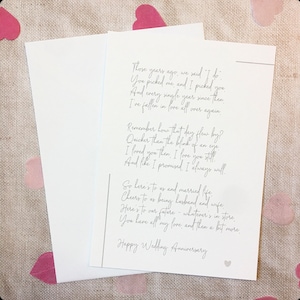 Those years ago, we said "I do"
You picked me, and I picked you
And every single year since then
I've fallen in love all over again.
Remember how that day flew by?
Quicker than the blink of an eye
I loved you then, I love you still
And like I promised, I always will.
So here's to us and married life,
Cheers to us being husband and wife
Here's to our future - whatever's in store,
You have all my love and then a bit more.
Happy Wedding Anniversary